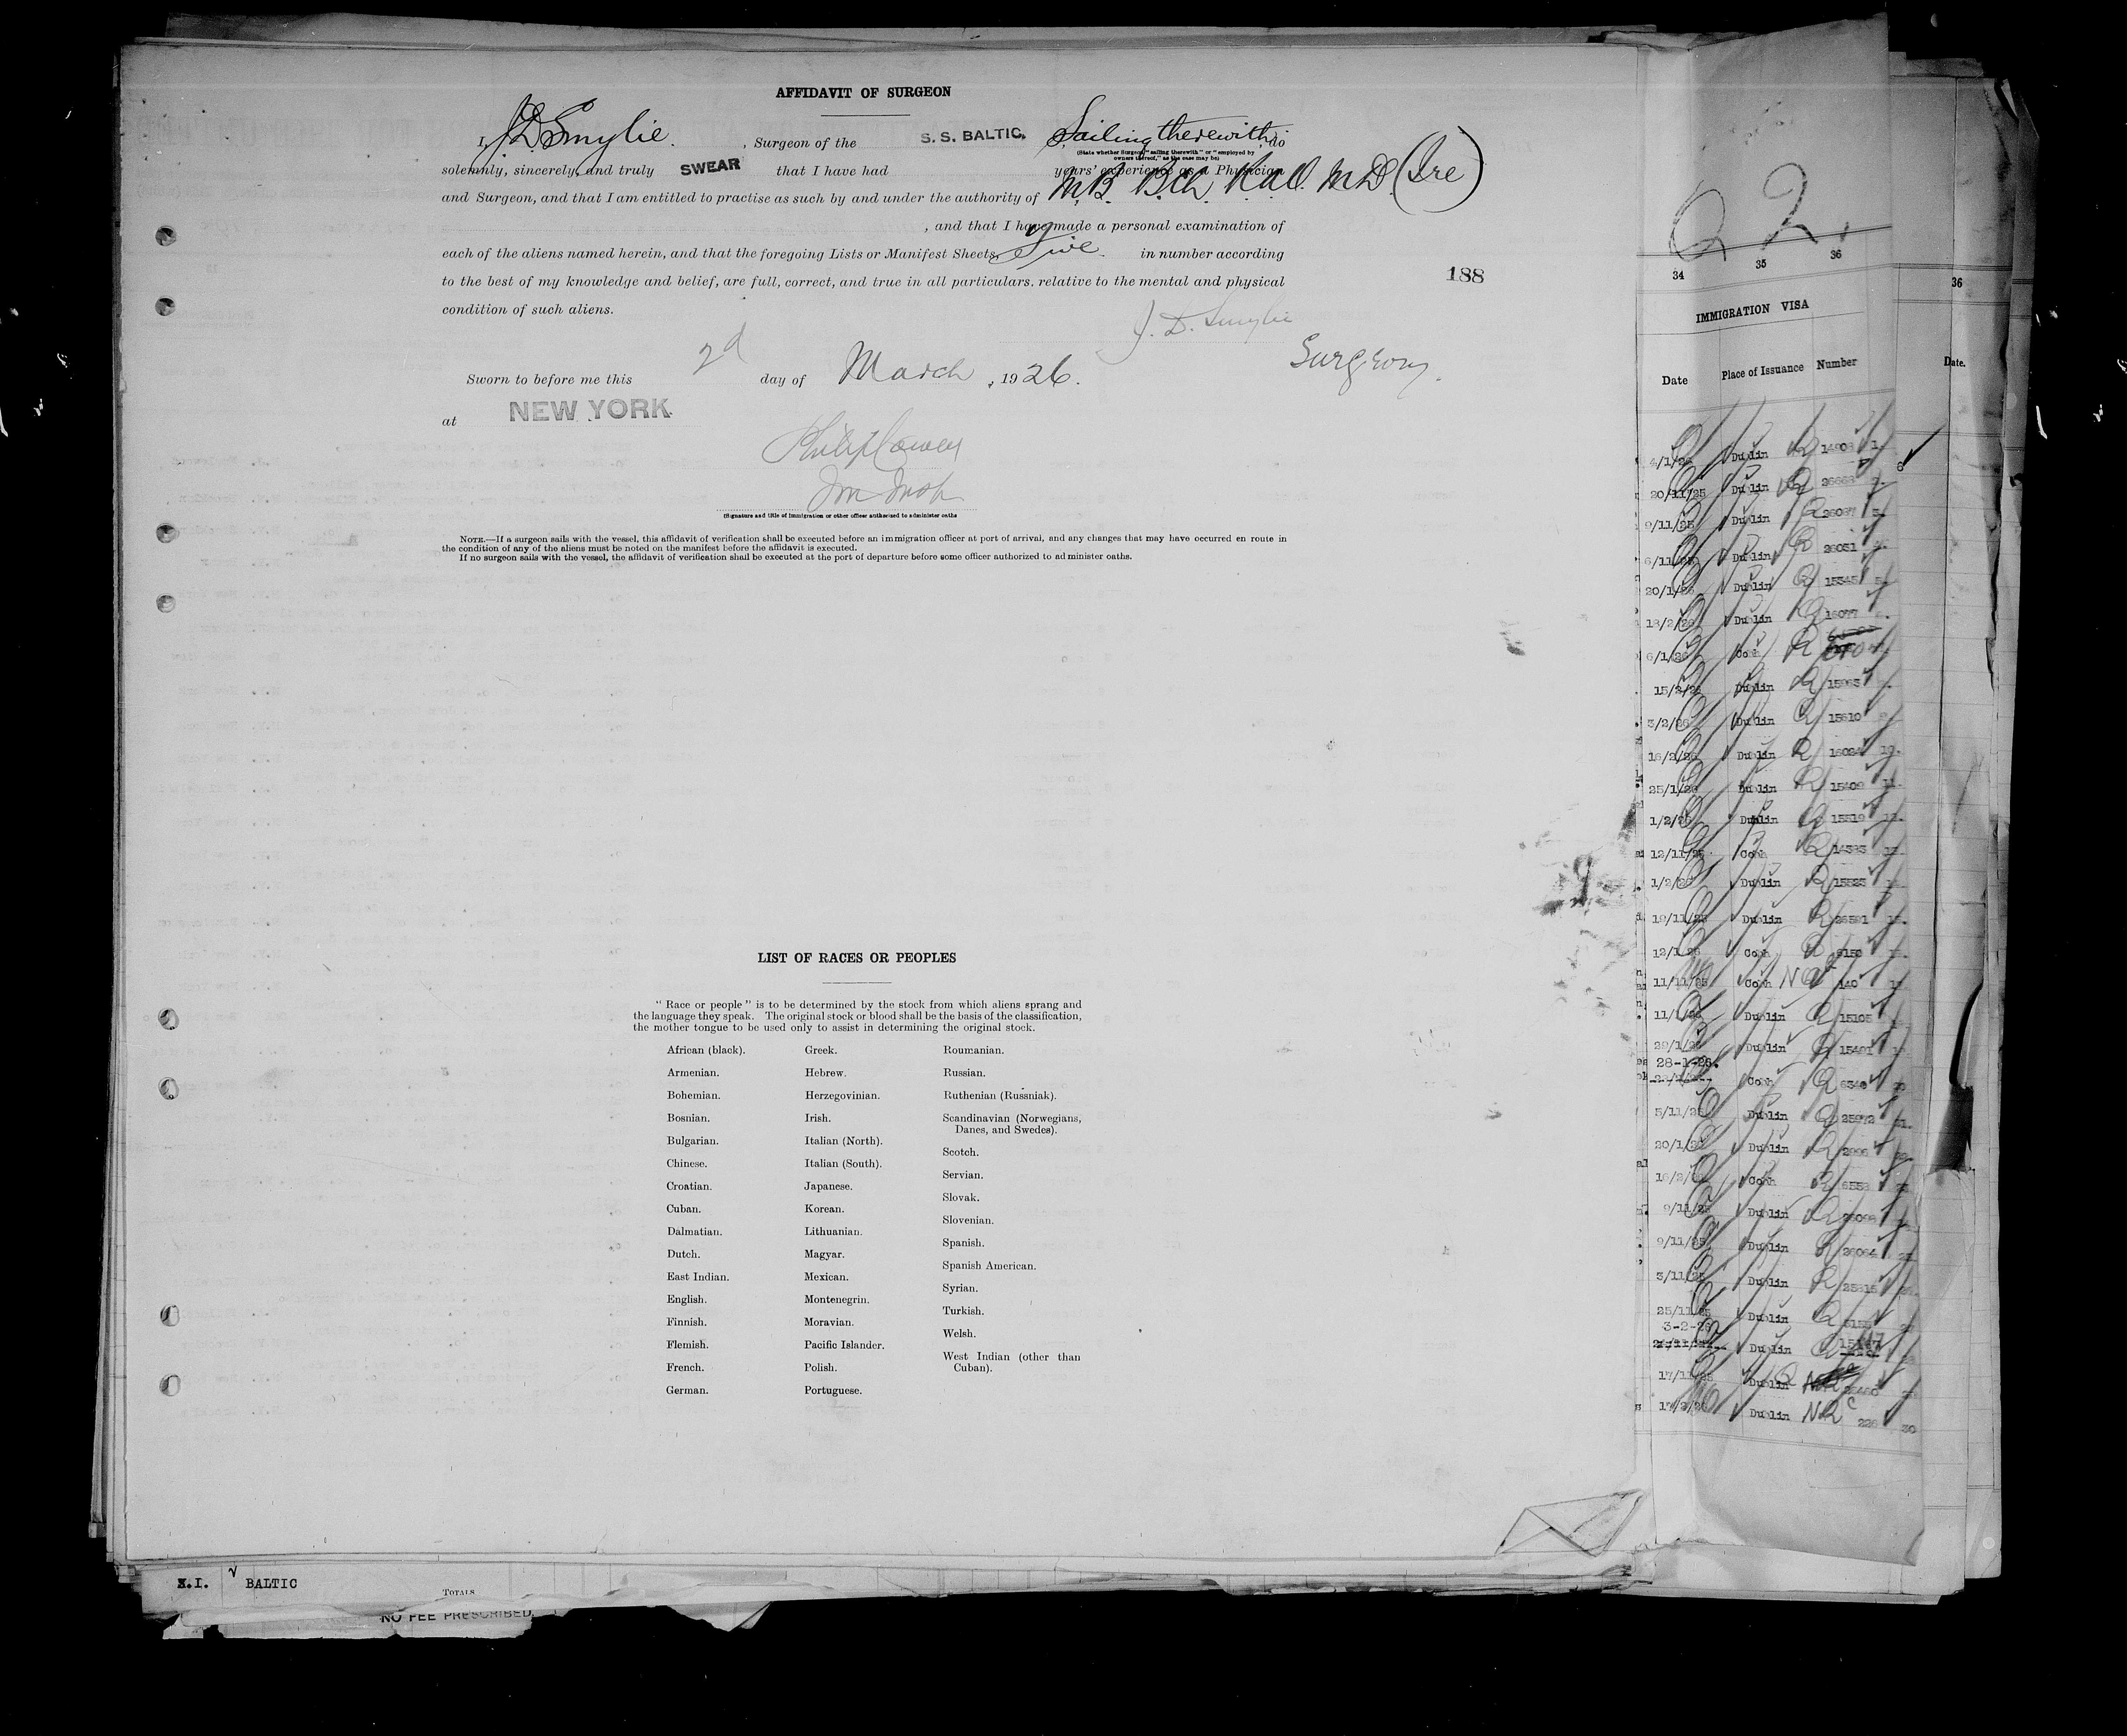 AFFIDAVIT OF SURGEON
I, J.D. Smylie, Surgeon of the S. S. BALTIC. Sailing therewith, do
(State whether Surgeon "sailing therewith" or "employed by
owners thereof," as the case may be)
solemnly, sincerely, and truly SWEAR that I have had years' experience as a Physician
and Surgeon, and that I am entitled to practise as such by and under the authority of M.B. B.Ch. M.D. (Ire)
, and that I have made a personal examination of
each of the aliens named herein, and that the foregoing Lists or Manifest Sheets, five in number according
to the best of my knowledge and belief, are full, correct, and true in all particulars. relative to the mental and physical
condition of such aliens.
188
J. D. Smylie
Surgeon.
Sworn to before me this 2d day of March, 1926.
at NEW YORK
(Signature and title of Immigration or other officer authorized to administer oaths
NOTE.—If a surgeon sails with the vessel, this affidavit of verification shall be executed before an immigration officer at port of arrival, and any changes that may have occurred en route in
the condition of any of the aliens must be noted on the manifest before the affidavit is executed.
If no surgeon sails with the vessel, the affidavit of verification shall be executed at the port of departure before some officer authorized to administer oaths.
LIST OF RACES OR PEOPLES
" Race or people " is to be determined by the stock from which aliens sprang and
the language they speak. The original stock or blood shall be the basis of the classification,
the mother tongue to be used only to assist in determining the original stock.
African (black).
Armenian.
Bohemian.
Bosnian.
Bulgarian.
Chinese.
Croatian.
Cuban.
Dalmatian.
Dutch.
East Indian.
English.
Finnish.
Flemish.
French.
German.
Greek.
Hebrew.
Herzegovinian.
Irish.
Italian (North).
Italian (South).
Japanese.
Korean.
Lithuanian.
Magyar.
Mexican.
Montenegrin.
Moravian.
Pacific Islander.
Polish.
Portuguese.
Roumanian.
Russian.
Ruthenian (Russniak).
Scandinavian (Norwegians,
Danes, and Swedes).
Scotch.
Servian.
Slovak.
Slovenian.
Spanish.
Spanish American.
Syrian.
Turkish.
Welsh.
West Indian (other than
Cuban).
X.I. BALTIC
TOTALS
NO FEE PRESCRIBED.
34 35 36
IMMIGRATION VISA
Date Place of Issuance Number
4/1/26 Dublin
20/11/25 Dublin
9/11/25 Dublin
6/11/25 Dublin 26031
20/1/26 Dublin 15345
18/2/26 Dublin
6/1/26 Cobh
15/2/26 Dublin
3/2/26 Dublin 15610
16/2/26 Dublin 16024 10.
25/1/26 Dublin 15409 11.
1/2/26 Dublin 15519
12/11/25 Cobh
1/2/26 Dublin 15523
19/11/25 Dublin 26591
12/1/26 Cobh 6150
11/11/25 Cobh 140
11/1/26 Dublin 15105
29/1/26 Dublin 15491
28-1-26.
Cobh 6349 20
5/11/25 Dublin 25972 21.
20/1/26 Dublin
16/2/26 Cobh 6553
9/11/25 Dublin
9/11/25 Dublin 26064
3/11/25 Dublin
25/11/25 Dublin
3-2-26
Dublin
17/11/25 Dublin
Dublin 226 30
36
Date.